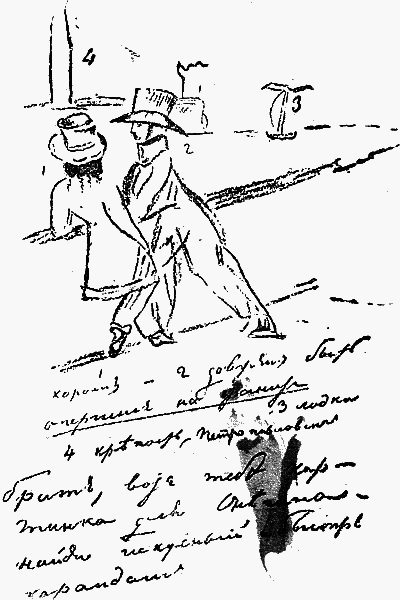 4
3
2
хорошъ – 2 долженъ быть
опершися на гранитъ
3 лодка
4 крѣпость Петропавловская
Братъ, вотъ тебѣ кар–
тинка для Оне –
найди искусный быстрый
карандашъ